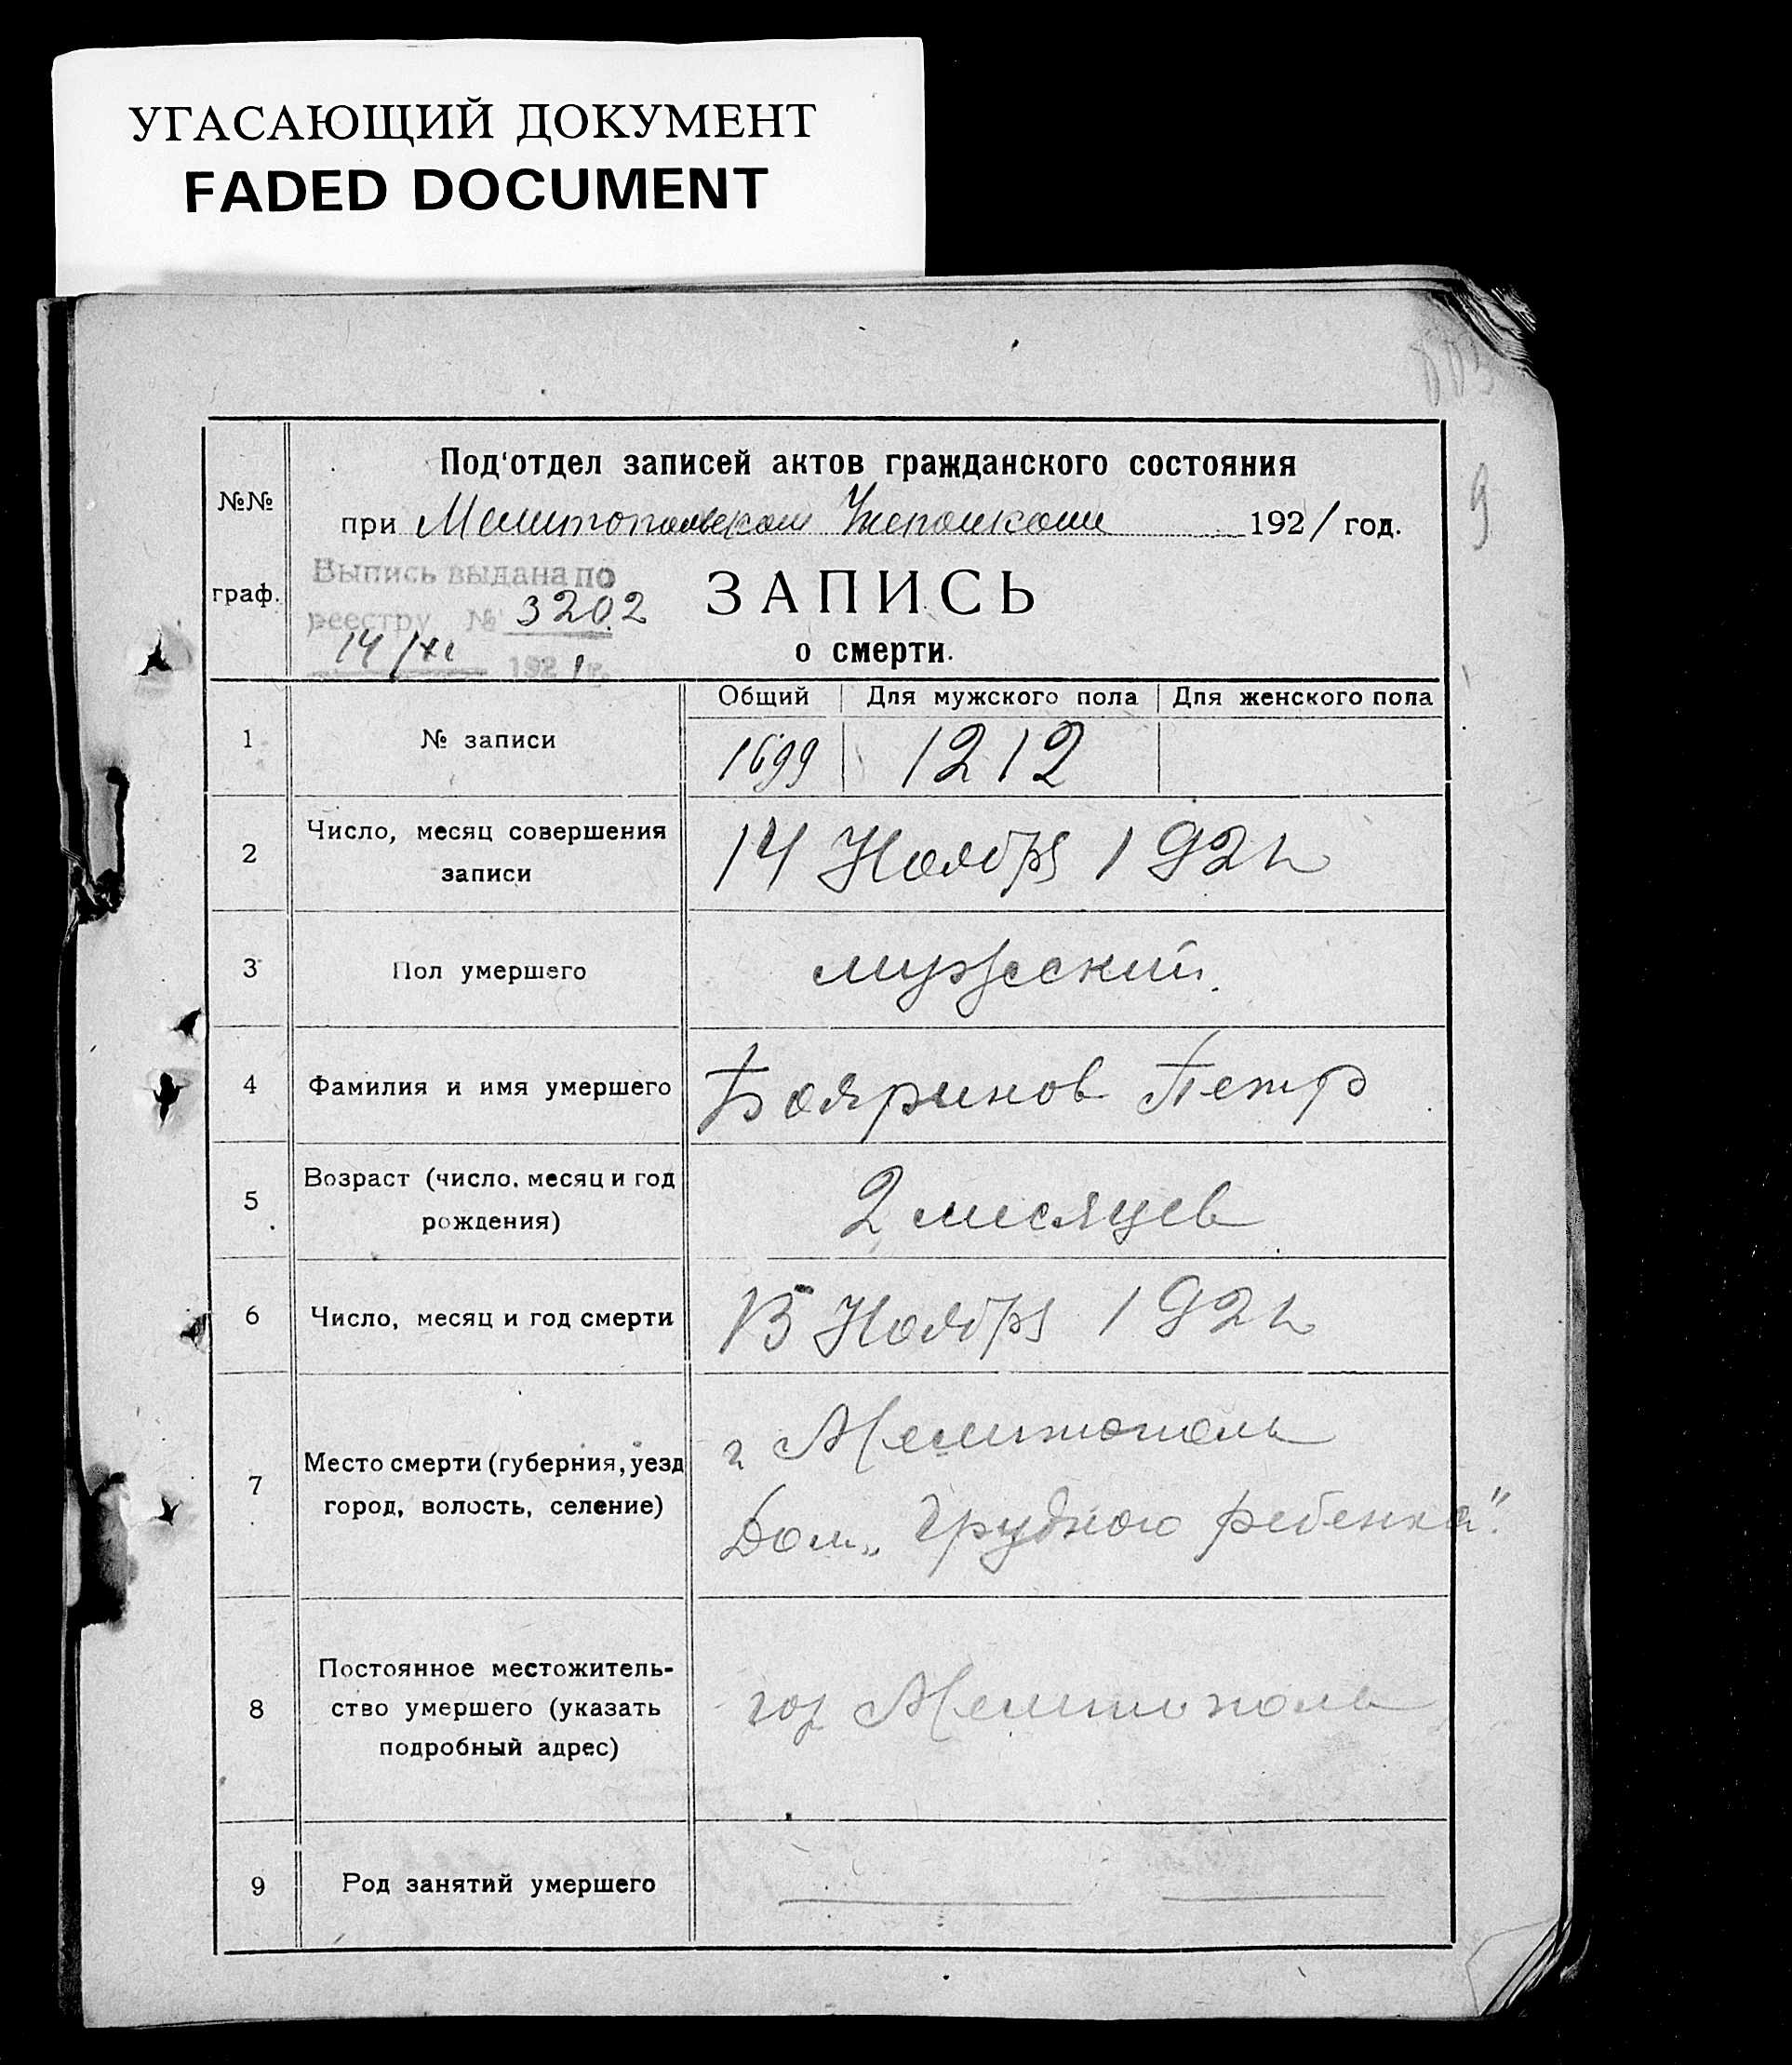 УГАСАЮЩИЙ ДОКУМЕНТ
FADED DOCUMENT
9
№№
граф.
Под'отдел записей актов гражданского состояния
при Мелитопольском 1921 год.
Выпись выдана по
реестру № 3202
14/XI 1921 г.
ЗАПИСЬ
о смерти.
Общий Для мужского пола Для женского пола
1 № записи 1699 1212
2 Число, месяц совершения
записи
14 Ноябр 1921
3 Пол умершего мужеский.
4 Фамилия и имя умершего Бояринов Петр
5 Возраст (число, месяц и год
рождения)
2 месяцев
6 Число, месяц и год смерти Ноябр 1921
7 Место смерти (губерния, уезд
город, волость, селение)
г Мелитополь
Дом „Грудного ребенка".
8 Постоянное местожитель-
ство умершего (указать
подробный адрес)
гор Мелитополь
9 Род занятий умершего